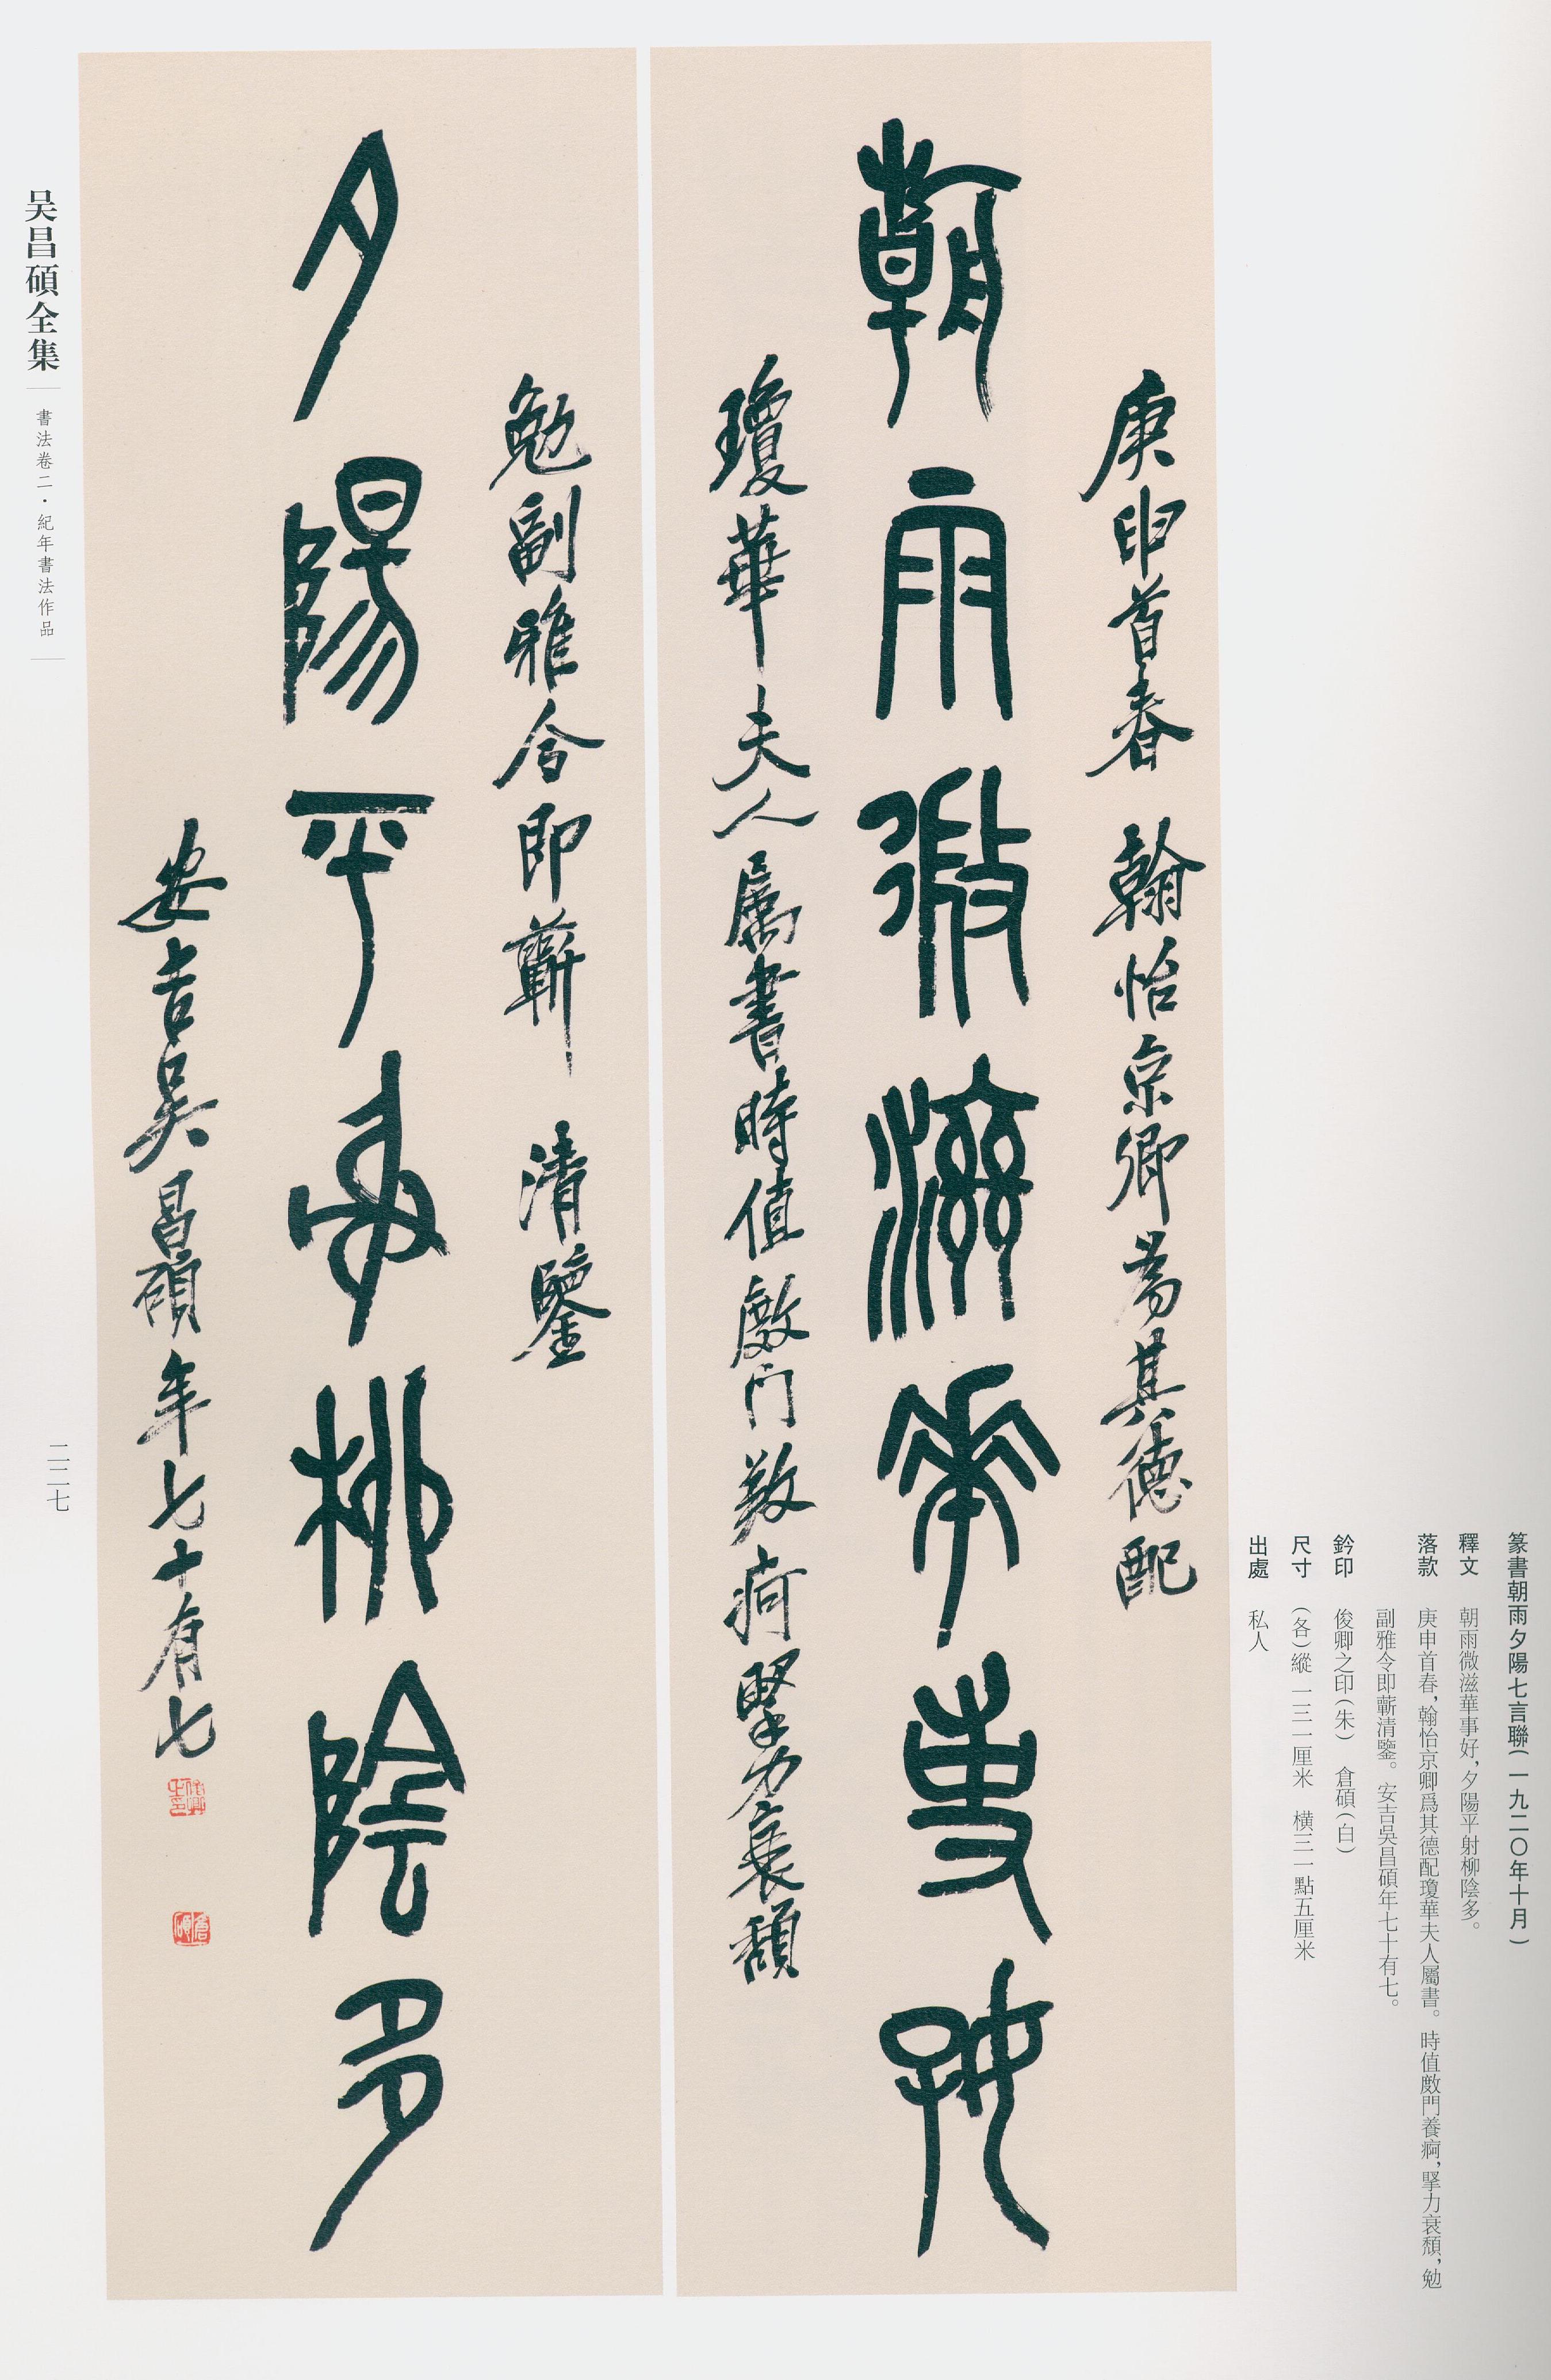 篆書朝雨夕陽七言聯(一九二〇年十月)
釋文 朝雨微滋華事好，夕陽平射柳陰多。
落款 庚申首春，翰怡京卿爲其德配瓊華夫人屬書。時值廒門養痾，掔力衰頹，勉
副雅令即蘄清鑒。安吉吳昌碩年七十有七。
鈐印 俊卿之印(朱) 倉碩(白)
尺寸 (各)縱一三一厘米 橫三一點五厘米
出處 私人
庚申首春 翰怡京卿為其德配
朝雨微滋華事好
瓊華夫人属書時值廒门養痾掔力衰頹
勉副雅令即蘄 清鑒
夕陽平射柳陰多
安吉吴昌碩年七十有七
俊卿之印
倉碩
吴昌碩全集
書法卷二·紀年書法作品
二二七